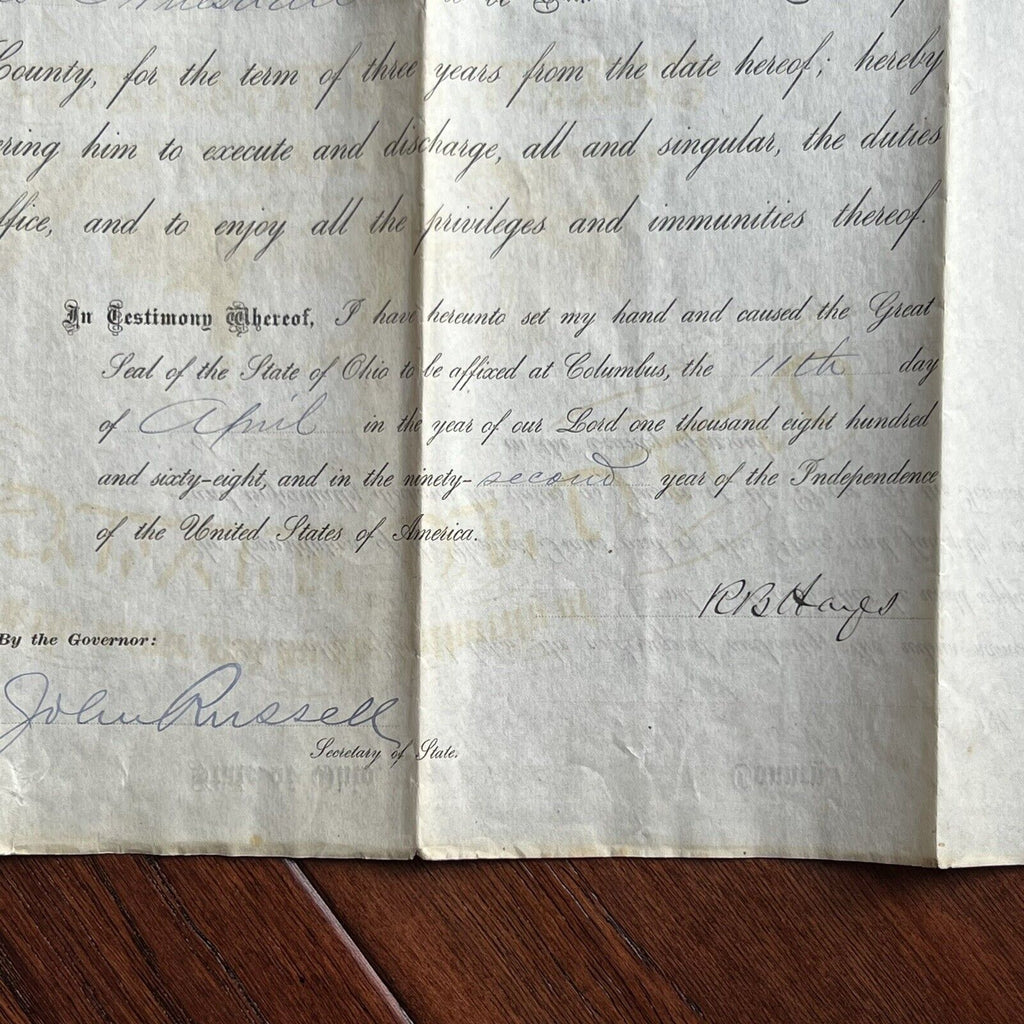 County, for the term of three years from the date hereof; hereby
ering him to execute and discharge, all and singular, the duties
ffice, and to enjoy all the privileges and immunities thereof.
In Testimony Whereof, I have hereunto set my hand and caused the Great
Seal of the State of Ohio to be affixed at Columbus, the 11th day
of April in the year of our Lord one thousand eight hundred
and sixty-eight, and in the ninety-second year of the Independence
of the United States of America.
RB Hayes
By the Governor:
John Russell
Secretary of State.